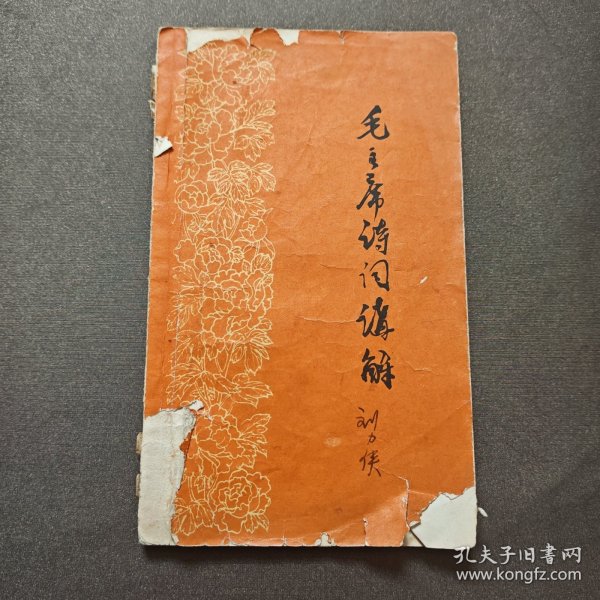 毛主席诗词讲解
刘力侠
孔夫子旧书网
www.kongfz.com